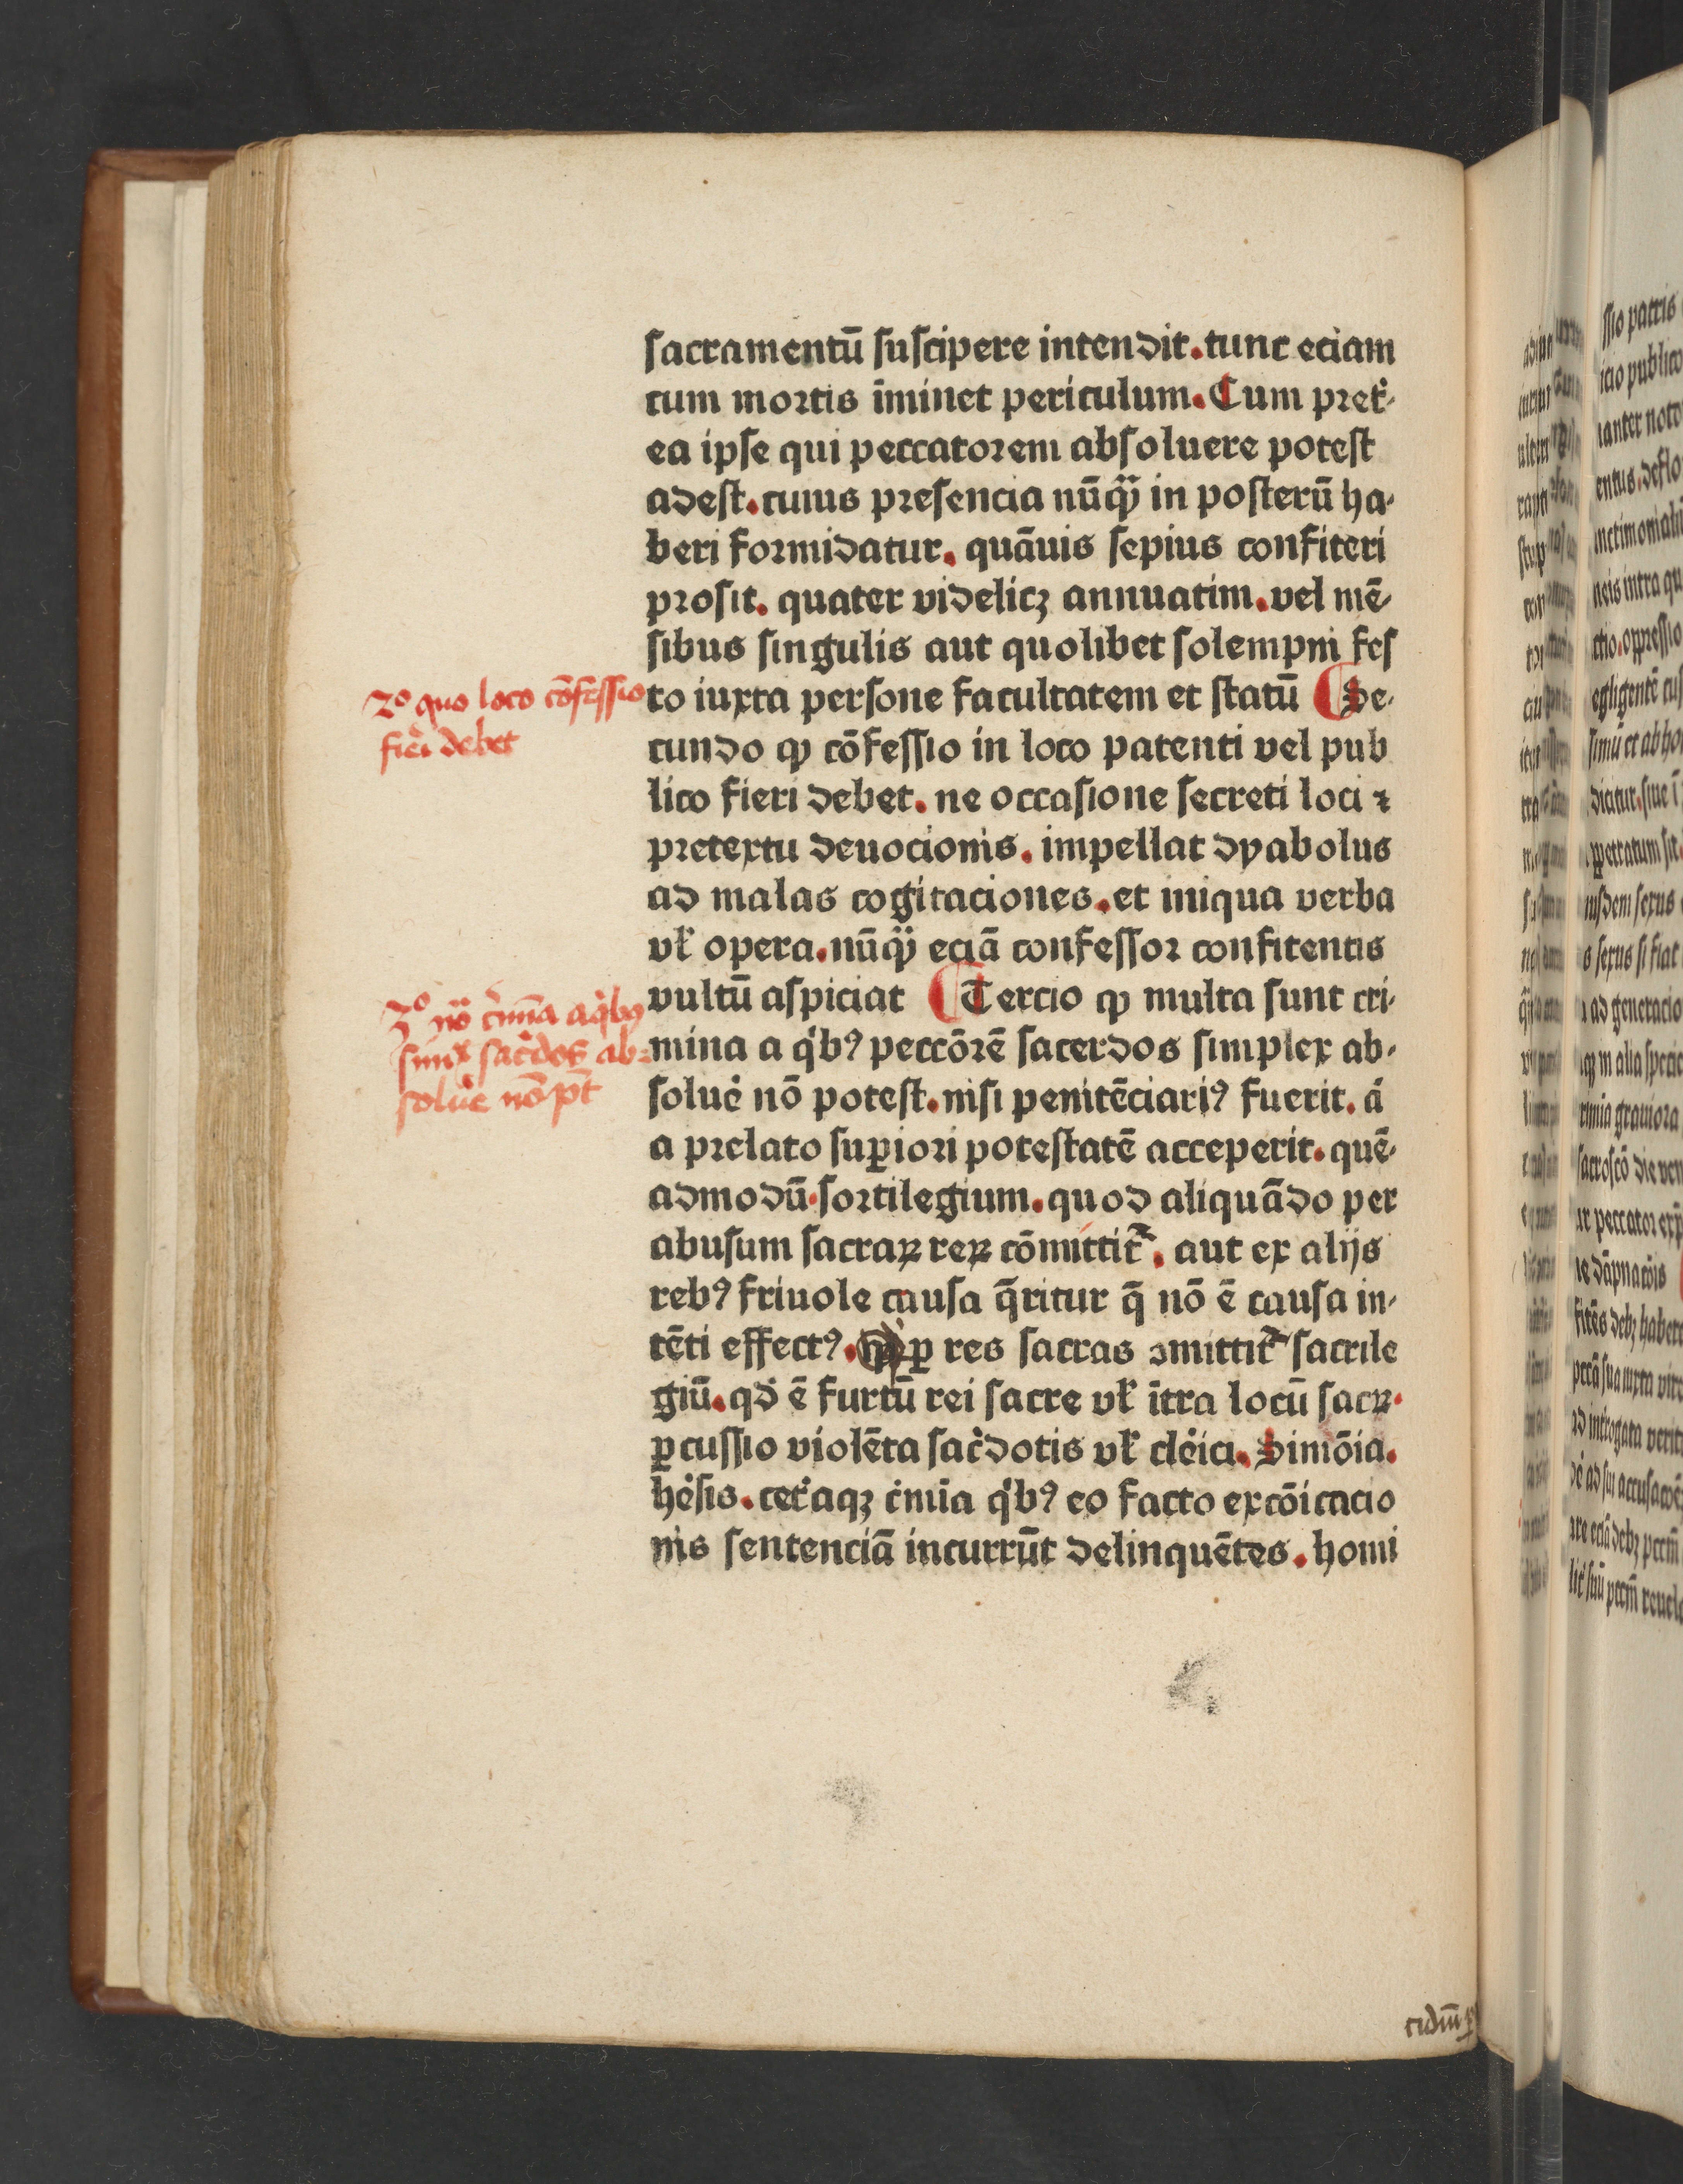 sacramentū suscipere intendit. tunc eciam
cum mortis īminet periculum. Cum pret̉-
ea ipse qui peccatorem absoluere potest
adest. cuius presencia nūqꝫ in posterū ha-
beri formidatur. quāuis sepius confiteri
prosit. quater videlicꝫ annuatim. vel mē-
sibus singulis aut quolibet solempni fes
2º quo loco cōfessio
fieri debet
to iuxta persone facultatem et statū Se-
cundo ꝙ cōfessio in loco patenti vel pub
lico fieri debet. ne occasione secreti loci ⁊
pretextu deuocionis. impellat dyabolus
ad malas cogitaciones. et iniqua verba
vł opera. nūqꝫ eciā confessor confitentis
vultū aspiciat Tercio ꝙ multa sunt cri-
3º nō c̉mīa a q̇bꝰ
simˣ sac̉dos ab-
solu̓e nō pt̄
mina a q̇bꝰ peccōrē sacerdos simplex ab-
solue̓ nō potest. nisi penitēciariꝰ fuerit. á
a prelato suꝑiori potestatē acceperit. quē-
admodū. sortilegium. quod aliquādo per
abusum sacraꝝ reꝝ cōmittit᷑. aut ex alijs
rebꝰ friuole causa q̄ritur q̄ nō ē causa in-
tēti effectꝰ. ꝑ res sacras ↄmittit᷑ sacrile
giū. qd̓ ē furtū rei sacre vł ītra locū sacꝝ.
ꝑcussio violēta sac̉dotis vł cle̓ici. Simōia.
he̓sis. cet̉aqꝫ c̉mīa q̇bꝰ eo facto excōicacio
nis sentenciā incurrūt delinquētes. homi